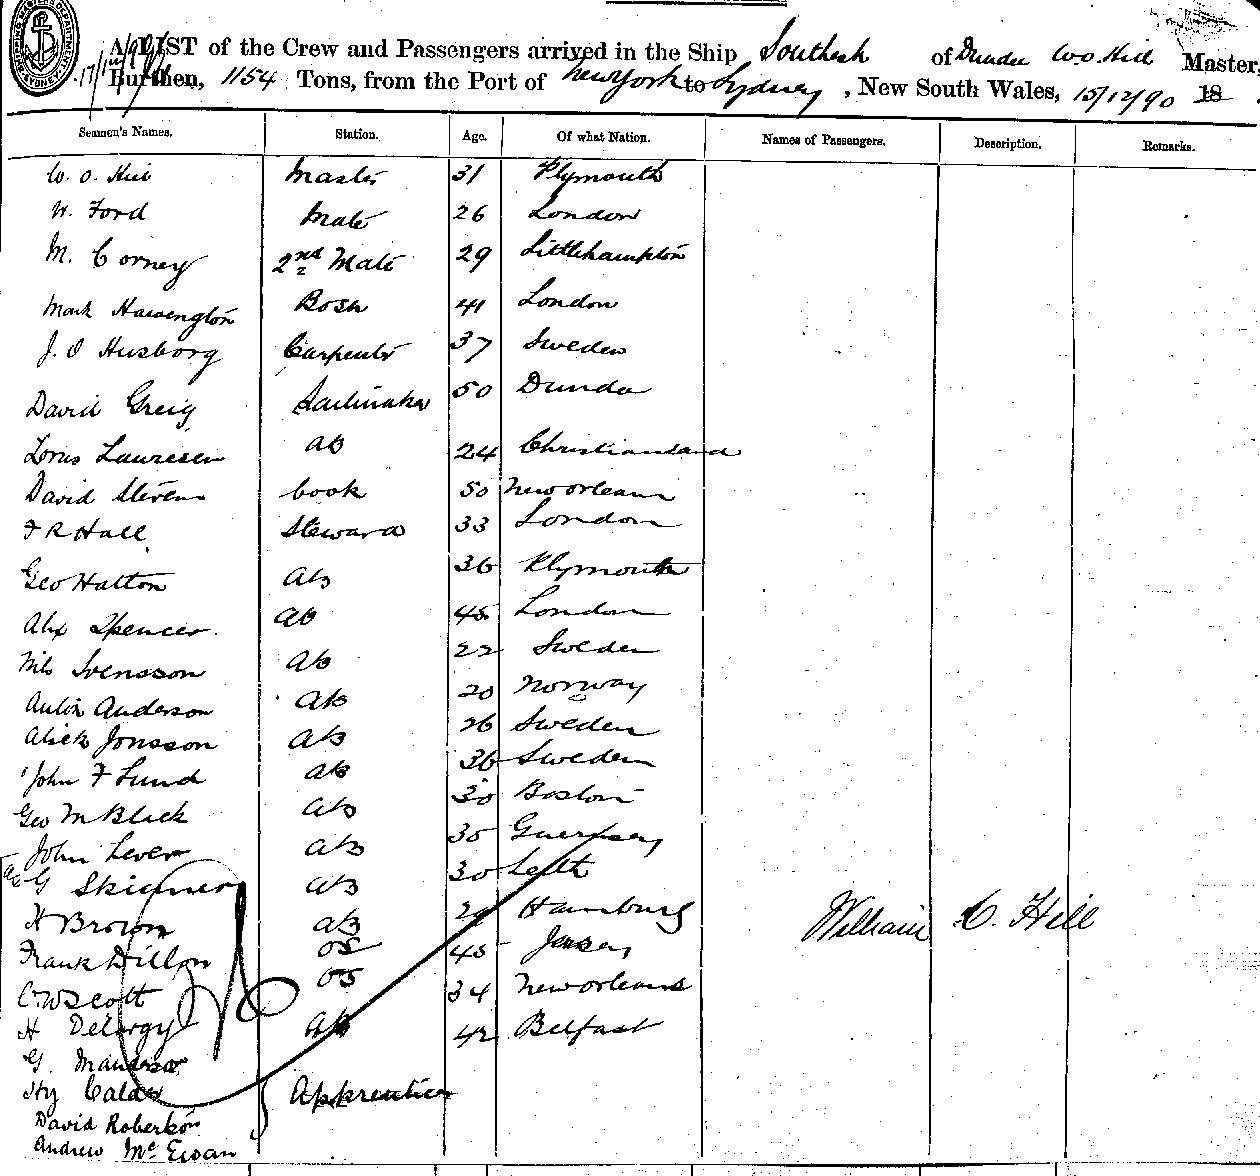 A LIST of the Crew and Passengers arrived in the Ship Southesk of Dundee W.O. Hill Master,
Burthen, 1154 Tons, from the Port of New York to Sydney, New South Wales, 15/12/90 18
Seamen's Names. Station. Age. Of what Nation. Names of Passengers. Description. Remarks.
W. O. Hill Master 31 Plymouth
W. Ford Mate 26 London
M. Corney 2nd Mate 29 Littlehampton
Mark Bosn 41 London
J. O Husborg Carpenter 37 Sweden
David Greig Sailmaker 50 Dundee
Laursen AB 24 Christiansand
David Stevens Cook 50 New Orleans
F R Hall Steward 33 London
Geo Hatton AB 36 Plymouth
Alex Spencer AB 45 London
Nils Svensson AB 22 Sweden
Anton Anderson AB 20 Norway
Alick Jonsson AB 26 Sweden
John F Lund AB 36 Sweden
Geo M Black AB 30 Boston
John Lever AB 35 Guernsey
G Skinner AB 30 Leith
H Brown AB Hamburg
Frank Dillon OS 45 Jersey
C. W Scott OS 34 New Orleans
H Delargy AB 42 Belfast
G. Manderson
Hy Calder Apprentices
David Robertson
Andrew McEwan
William O. Hill